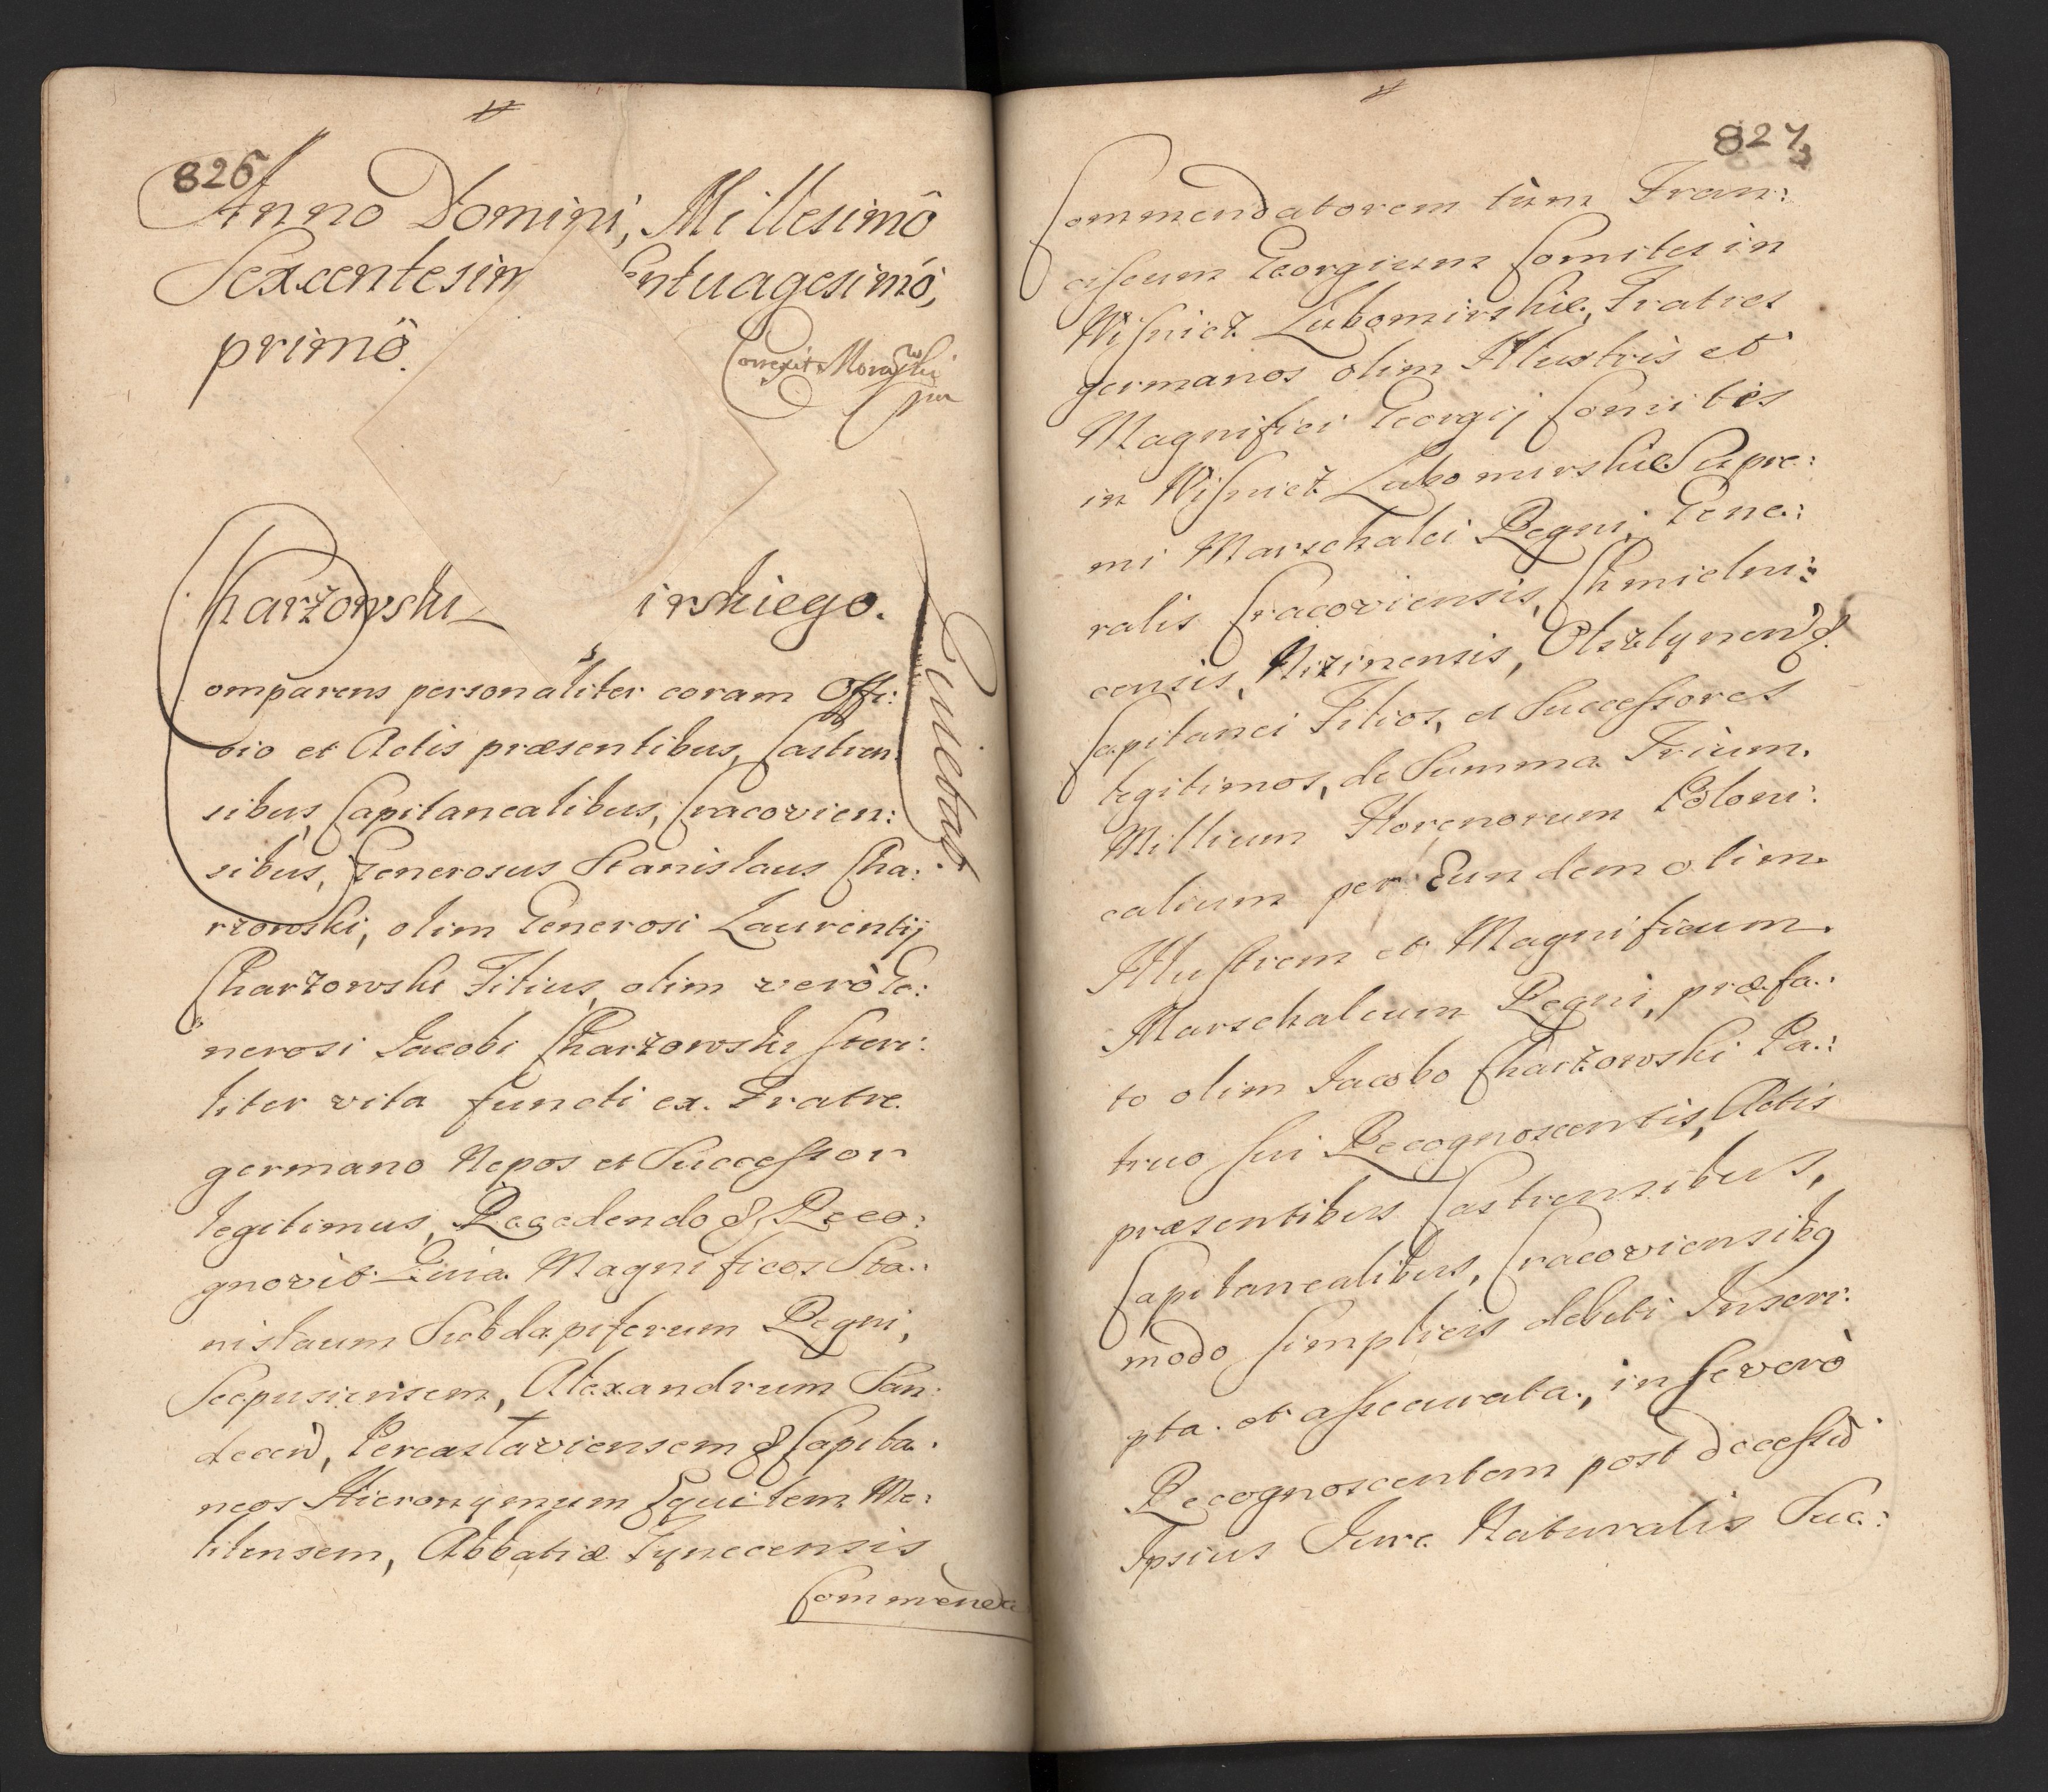 826
Anno Domini, Millesimô
Sexcentesim entuagesimô,
primô.
Correxit
Charzowski irskiego.
Comparens personaliter coram Offi:
cio et Actis præsentibus, Castren:
sibus, Capitanealibus, Cracovien:
sibus, Generosus Stanislaus Cha:
rzowski, olim Generosi Laurentij
Charzowski Filius, olim verò Ge:
nerosi Jacobi Charzowski steri:
liter vita functi ex Fratre
germano Nepos et Successor
legitimus, Recedendo & Reco:
gnovit Quia Magnificos Sta:
nislaum Subdapiferum Regni,
Scepusiensem, Alexandrum San:
decen, Pereaslaviensem & Capita:
neos Hieronymum Equitem Me:
litensem, Abbatiæ Tynecensis
Commenda
Quietat
827
Commendatorem tùm Fran:
ciscum Georgium Comites in
Wisnicz Lubomirskie, Fratres
germanos olim Illustris et
Magnifici Georgij Comitis
in Wisnicz Lubomirskie Supre:
mi Marschalci Regni, Gene:
ralis Cracoviensis, Chmielni:
censis, Nizinensis, Olsztynen &
Capitanei Filios, et Successores
legitimos, de Summa Trium
Millium Florenorum Poloni:
calium per Eundem olim
Illustrem et Magnificum
Marschalcum Regni, præfa:
to olim Jacobo Charzowski Pa:
truo sui Recognoscentis, Actis
præsentibus Castrensibus,
Capitanealibus, Cracoviensibq
modo simplicis debiti Inscri:
pta et assecurata, in se verò
Recognoscentem post decessũ
Ipsius Jure Naturalis Suc: